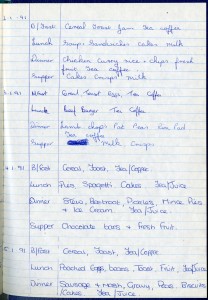 2.1.91 B/Fast Cereal Toast Jam Tea coffee
Lunch Soup Sandwiches cakes milk
Dinner Chicken Curry rice + chips fresh
fruit Tea coffee
Supper Cakes Crisps milk
3.1.91 B/fast Cereal Toast Eggs, Tea Coffee
Lunch Beef Burger Tea Coffee
Dinner chips Peas Cod
Tea coffee
Supper milk Crisps
4.1.91 B/Fast Cereal, Toast, Tea/Coffee
Lunch Pies, Spagetti, Cakes Tea/Juice
Dinner Stew, Beetroot, Pickles, Mince Pies
+ Ice Cream Tea/Juice
Supper Chocolate bars + Fresh Fruit.
5.1.91 B/Fast Cereal, Toast, Tea/Coffee
Lunch Poached Eggs, beans, Toast, Fruit, Tea/Juice
Dinner Sausage + Mash, Gravy, Peas, Biscuits
/Cakes Tea/Juice